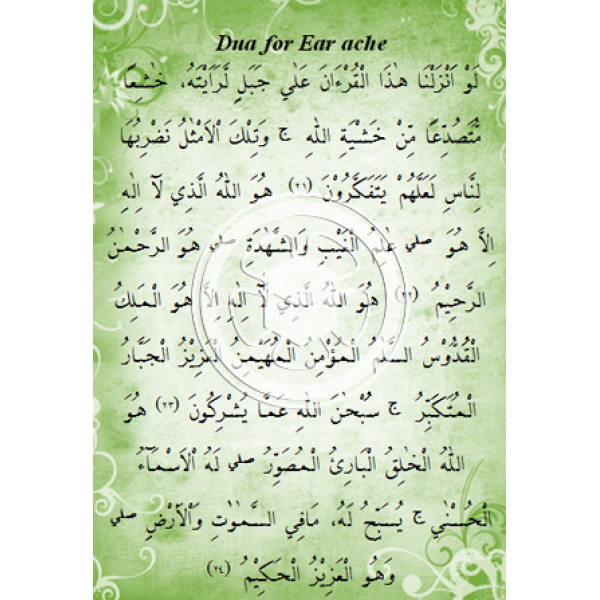 Dua for Ear ache
لَوْ اَنْزَلْنَا هٰذَا الْقُرْءَانَ عَلٰي جَبَلٍ لَّرَاَيْتَهٗ، خٰشِعًا
مُّتَصَدِّعًا مِّنْ خَشْيَةِ اللهِ ج وَتِلْكَ الْاَمْثٰلُ نَضْرِبُهَا
لِنَّاسِ لَعَلَّهُمْ يَتَفَكَّرُوْنَ (٢١) هُوَ اللهُ الَّذِي لَآ اِلٰهَ
اِلَّا هُوَ صلي عٰلِمُ الْغَيْبِ وَالشَّهٰدَةِ صلي هُوَ الرَّحْمٰنُ
الرَّحِيْمُ (٢٢) هُوَ اللهُ الَّذِي لَآ اِلٰهَ اِلَّا هُوَ الْمَلِكُ
الْقُدُّوْسُ السَّلٰمُ الْمُؤْمِنُ الْمُهَيْمِنُ الْعَزِيْزُ الْجَبَّارُ
الْمُتَكَبِّرُ ج سُبْحٰنَ اللهِ عَمَّا يُشْرِكُوْنَ (٢٣) هُوَ
اللهُ الْخٰلِقُ الْبَارِئُ الْمُصَوِّرُ صلي لَهُ الْاَسْمَآءُ
الْحُسْنٰي ج يُسَبِّحُ لَهٗ، مَافِي السَّمٰوٰتِ وَالْاَرْضِ صلي
وَهُوَ الْعَزِيْزُ الْحَكِيْمُ (٢٤)